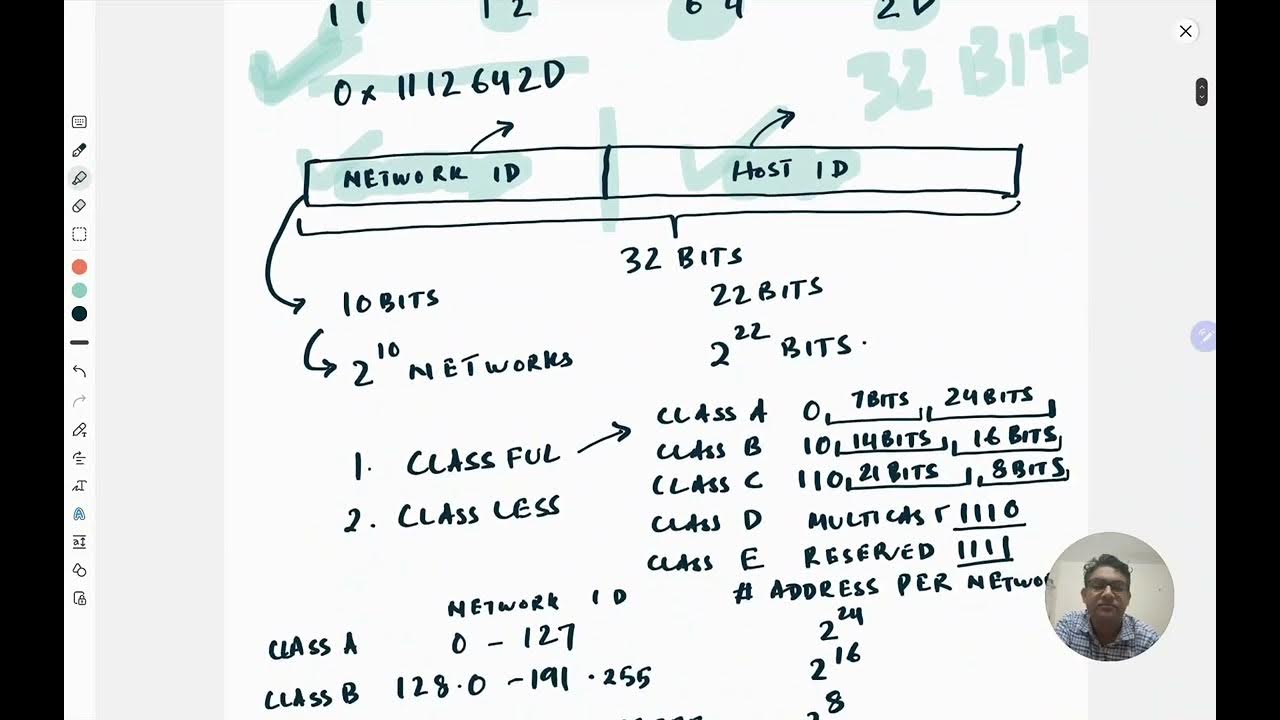 11 12 64 2D
32 BITS
0x1112642D
NETWORK ID HOST ID
32 BITS
10 BITS 22 BITS
2^10 NETWORKS 2^22 BITS.
CLASS A 0 7BITS 24BITS
1. CLASS FUL CLASS B 10 14BITS 16 BITS
CLASS C 110 21BITS 8BITS
2. CLASS LESS CLASS D MULTICAST 1110
CLASS E RESERVED 1111
NETWORK ID # ADDRESS PER NETWO
CLASS A 0 - 127 2^24
CLASS B 128.0 - 191.255 2^16
2^8